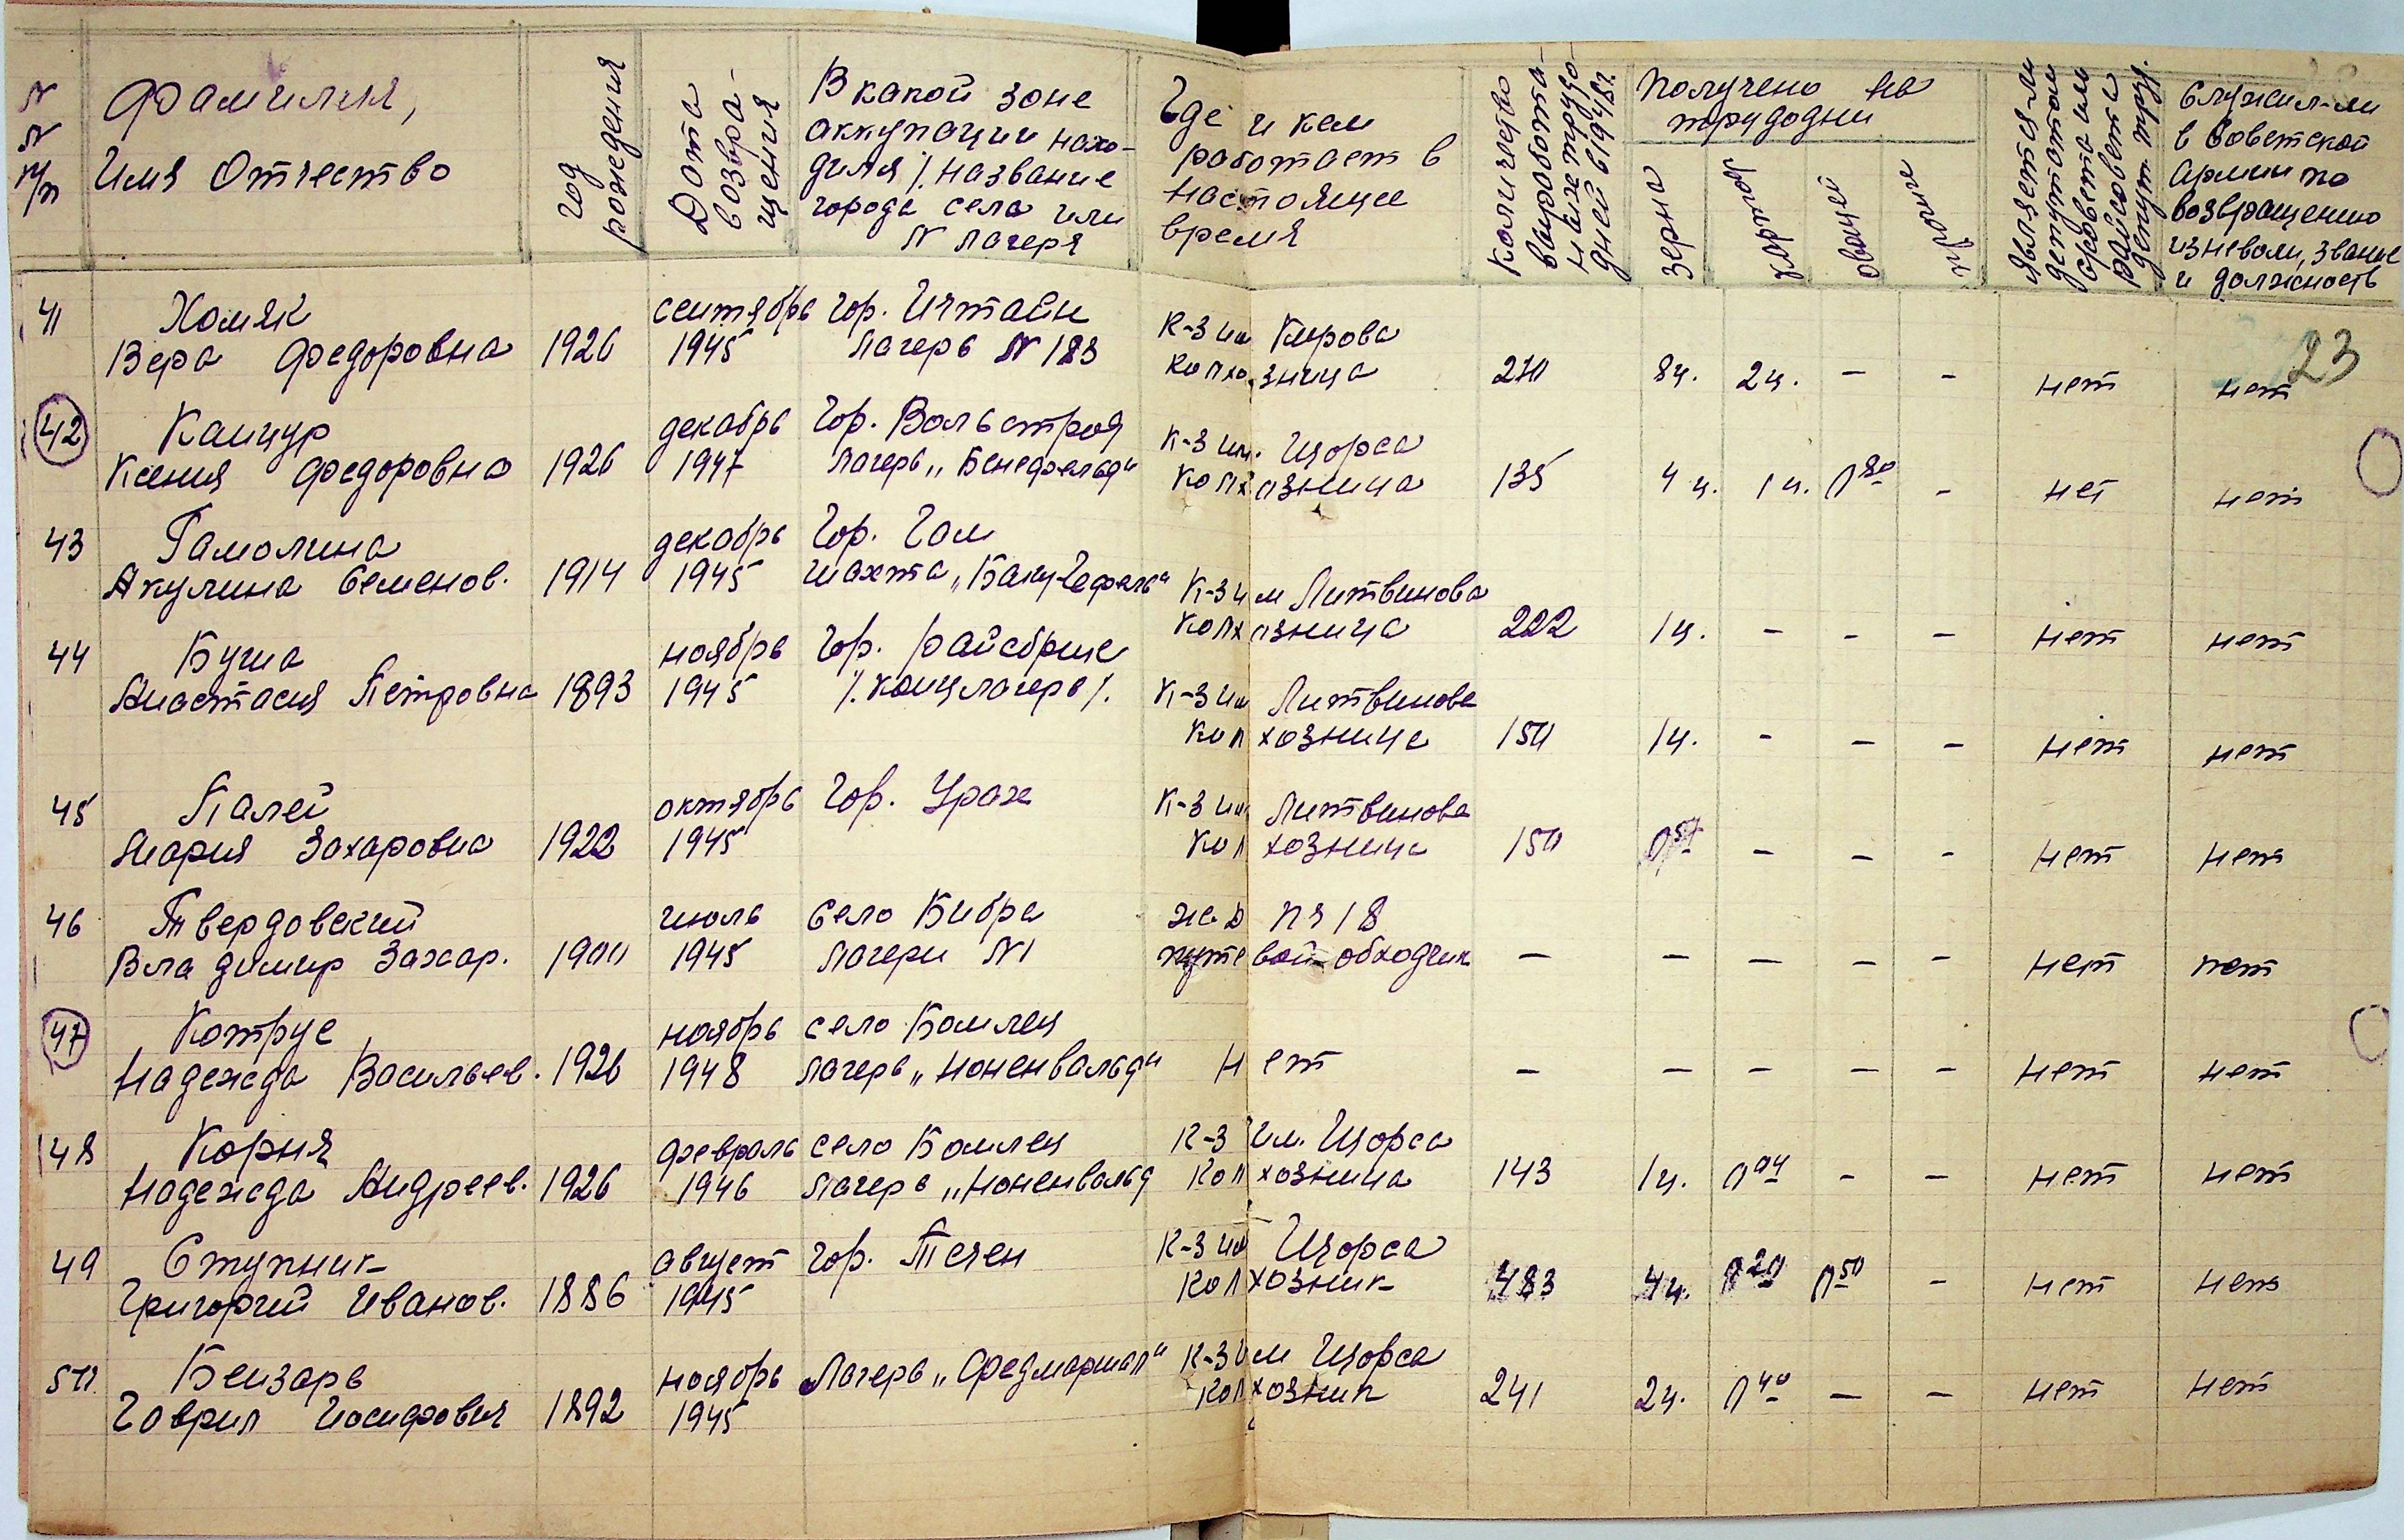 № № п/п
Фамилия,
Имя Отчество
год рождения
Дата возвра-
щения
В какой зоне
аккупации нахо-
дился /. название
города села или
№ лагеря
Где и кем
работает в
настоящее
время
Количество
выработа-
ных трудо-
дней в 1948г.
Получено на
трудодни
зерна
картоф
овощей
прочие
Является-ли
депутатом
с/совета или
райсовета
депут. труд.
Служил-ли
в Советской
Армии по
возвращению
из неволи, звание
и должность
23
41 Хомяк сентябрь гор. Иштайн К-з им Кирова
Вера Федоровна 1926 1945 лагерь № 183 колхозница 270 8ц. 2ц. – – нет нет
42 Канцур декабрь Гор. Вольстрод К-з им. Щорса
Ксения Федоровна 1926 1947 лагерь „Бенефельд" колхозница 135 4ц. 1ц. 0 80 – нет нет
43 Гамолина декабрь Гор. Гам
Акулина Семенов. 1914 1945 шахта К-з им Литвинова
колхозница 222 1ц. – – – нет нет
44 ноябрь Гор. Райсбрие
Анастасия Петровна 1893 1945 /. концлагерь /. К-з им Литвинова
колхозница 150 1ц. – – – нет нет
45 Палей октябрь Гор. Урах К-з им Литвинова
Мария Захаровна 1922 1945 колхозница 150 0 50 – – – нет нет
46 Твердовский июль Село Бибра ж.д ПЧ 18
Владимир Захар. 1900 1945 лагерь №1 путевой обходчик – – – – – нет нет
47 Котрус ноябрь село Бомлец
Надежда Васильев. 1926 1948 лагерь „Ноненвальд" Нет – – – – – нет нет
48 Корня февраль село Бомлец К-з им. Щорса
Надежда Андреев. 1926 1946 лагерь „Ноненвальд колхозница 143 1ц. 0 04 – – нет нет
49 Ступник август Гор. Течен К-з им Щорса
Григорий Иванов. 1886 1945 колхозник 483 4ц. 0 20 0 50 – нет нет
50 Бензарь ноябрь Лагерь „Федмаршал" К-з им Щорса
Гаврил Иосифович 1892 1945 колхозник 241 2ц. 0 40 – – нет нет